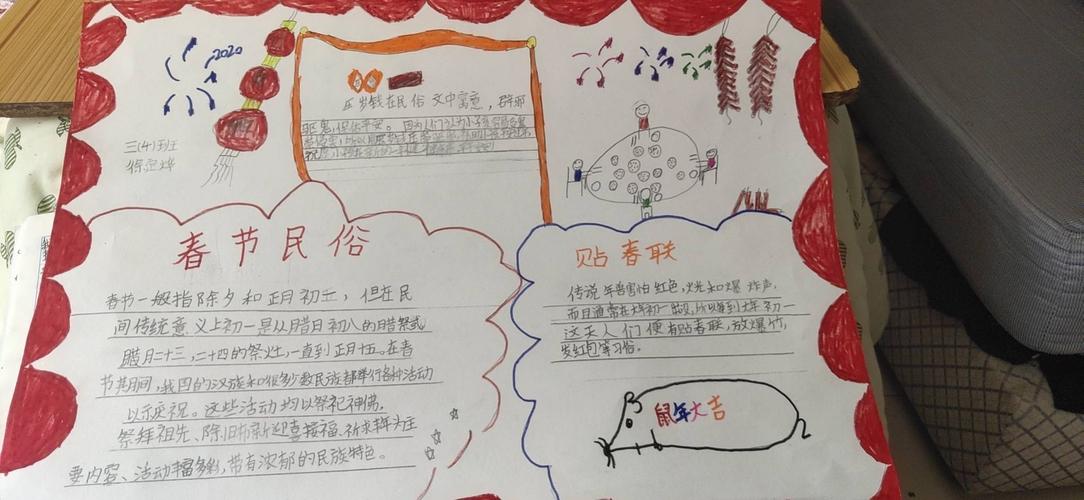 2020
三(4)班
压岁钱在民俗文中寓意,辟邪
驱鬼,保佑平安。因为人们认为小孩容易受鬼
春节民俗
春节一般指除夕和正月初一,但在民
间传统意义上初一是从腊日初八的腊祭或
腊月二十三,二十四的祭灶,一直到正月十五。在春
节其间,我国的汉族和很多少数民族都举行各种活动
以示庆祝。这些活动均以祭祀神佛,
祭拜祖先、除旧布新迎喜接福、祈求丰年为主
要内容、活动丰富多彩,带有浓郁的民族特色。
贴春联
传说年兽害怕红色,火光和爆炸声,
而且通常在大年初一出没,所以每到大年初一
这天人们便有贴春联,放爆竹,
发红包等习俗。
鼠年大吉